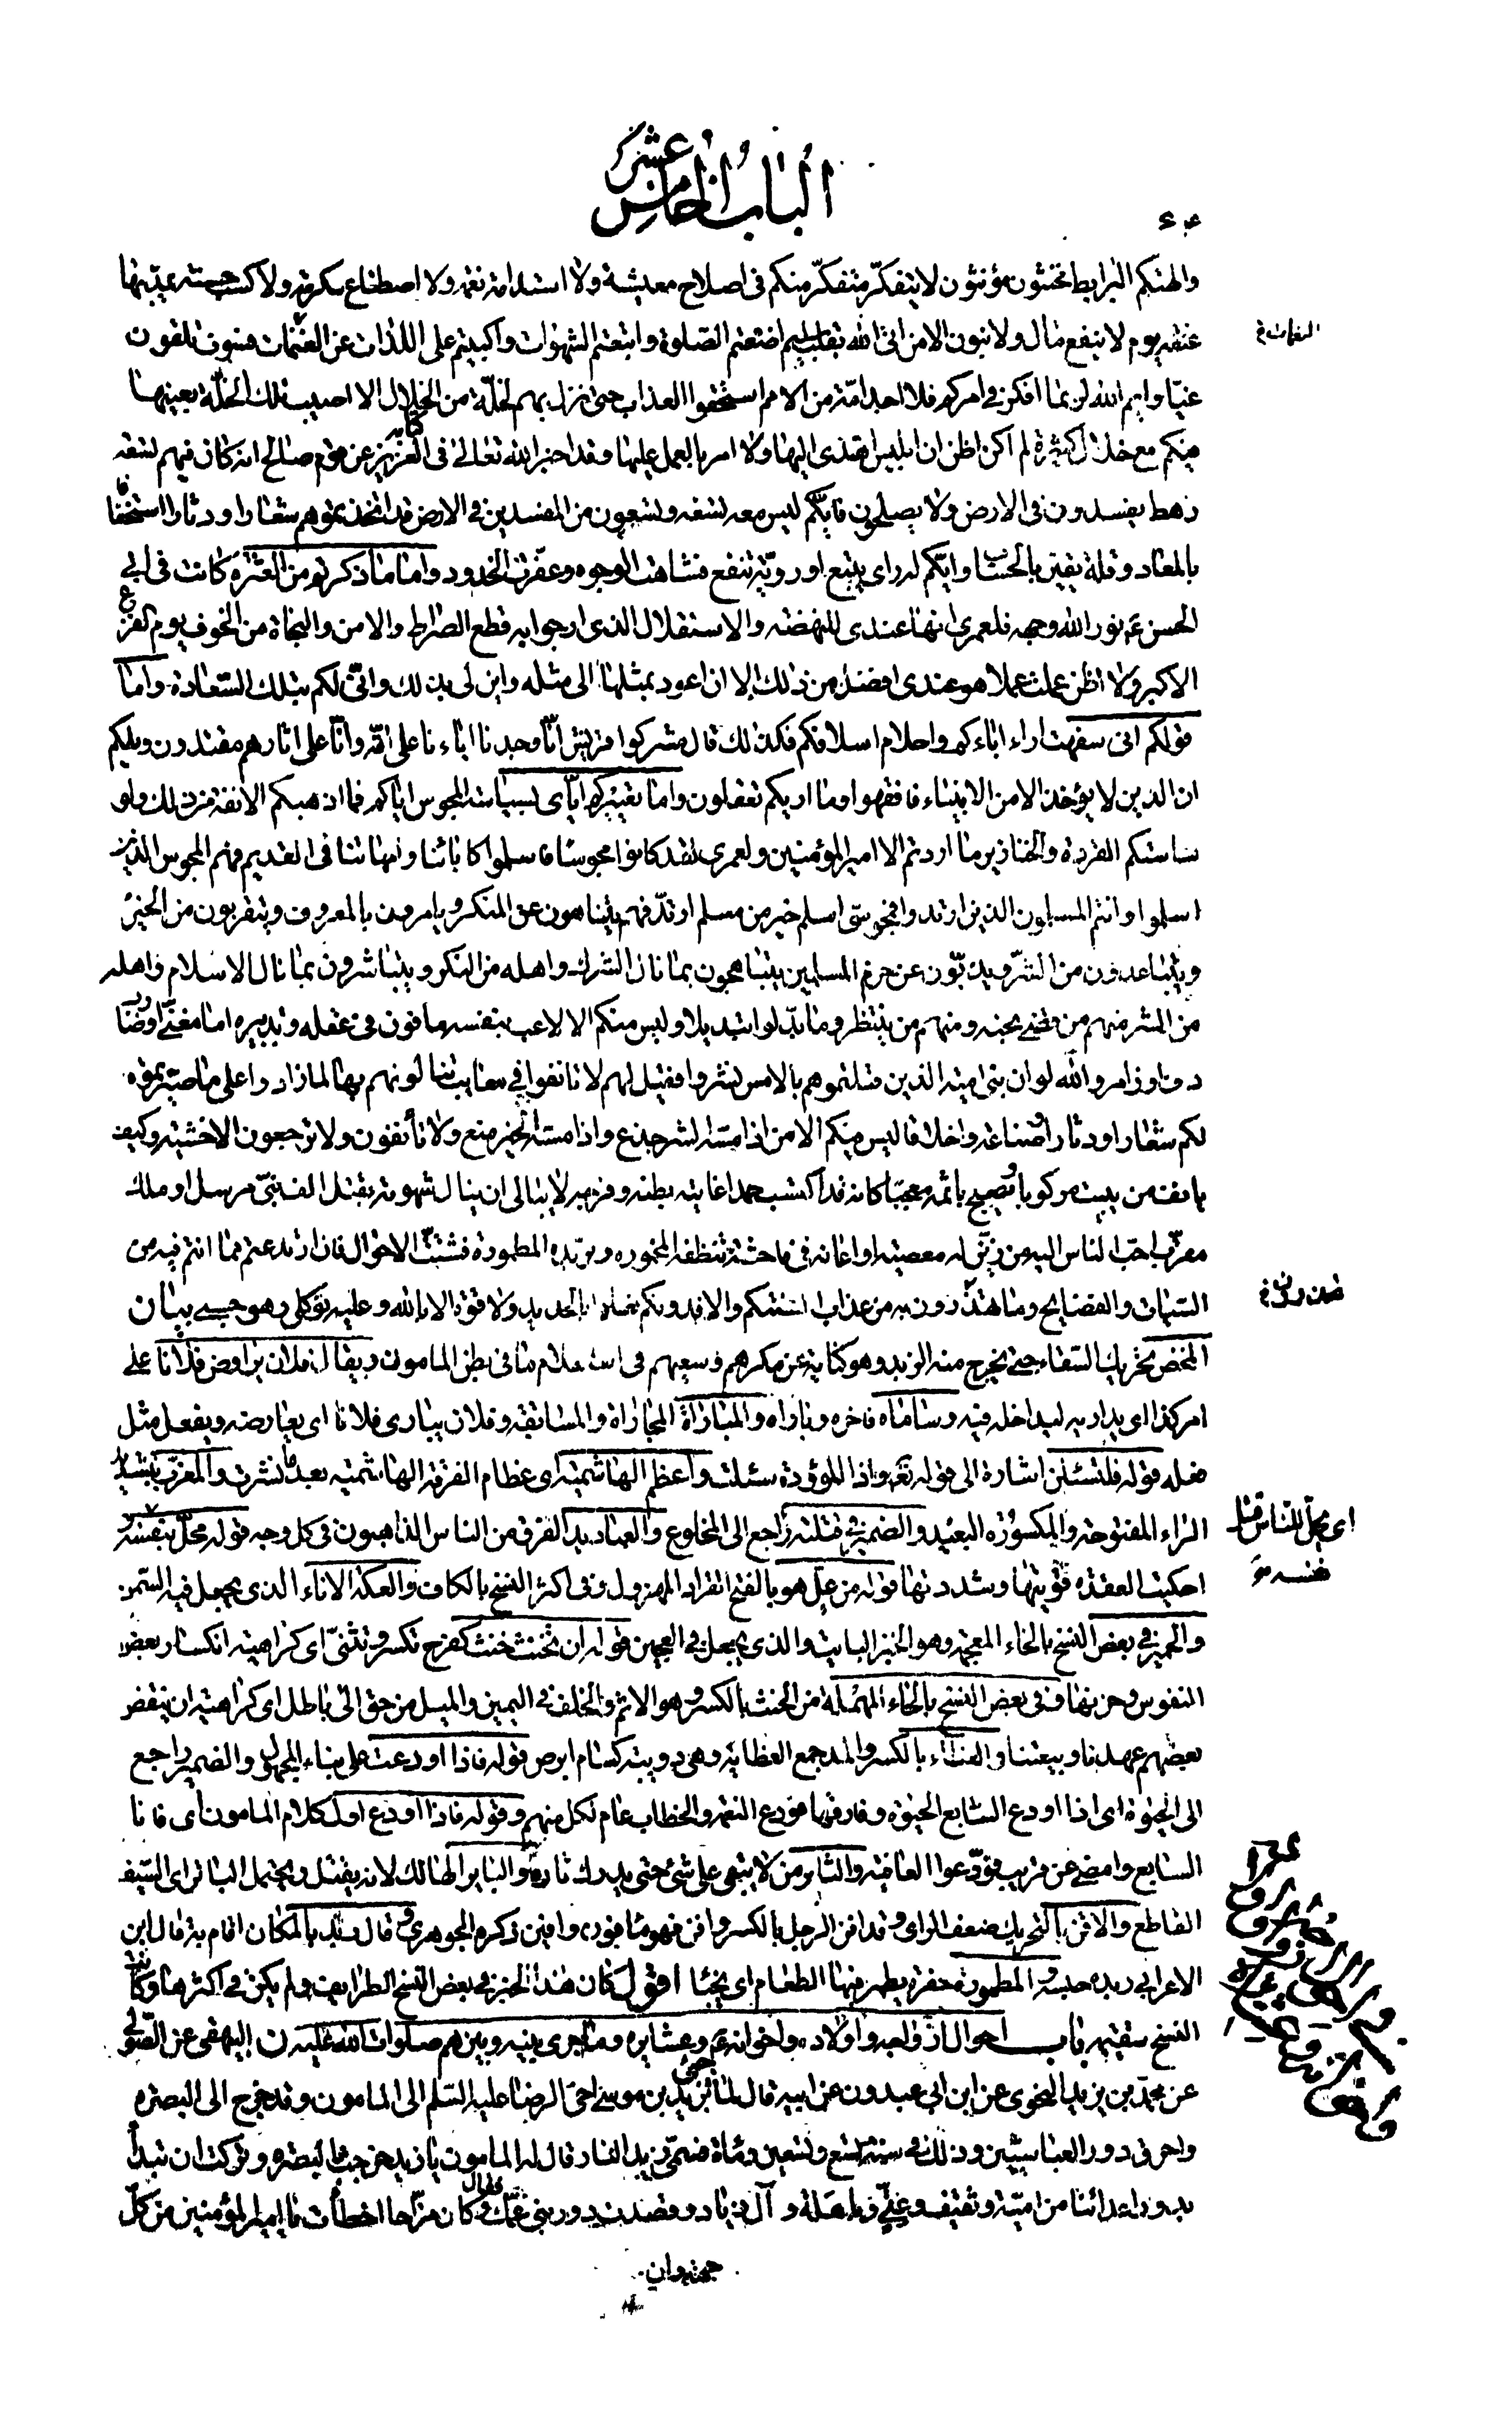 الباب الخامس عشر
٤
والهتكم البرابط مخنثون مؤنثون لا يتفكر متفكر منكم في اصلاح معيشة ولا استدامة نعمة ولا اصطناع مكرمة ولا كسب حسنة يمد بها
عنقه يوم لا ينفع مال ولا بنون الا من اتى الله بقلب سليم اضعتم الصلوة واتبعتم الشهوات واكببتم على اللذات عن النغمات فسوف تلقون
النغمات خ
غيا وايم الله لربما افكر في امركم فلا اجد امة من الامم استحقوا العذاب حتى نزل بهم لخلة من الخلال الا اصيب تلك الخلة بعينها
فيكم مع خلال كثيرة لم اكن اظن ان ابليس اهتدى اليها ولا امر بالعمل عليها وقد اخبر الله تعالى في كتابه العزيز عن قوم صالح انه كان فيهم تسعة
رهط يفسدون في الارض ولا يصلحون فايكم ليس معه تسعة وتسعون من المفسدين في الارض قد اتخذتموهم شعارا ودثارا استخفافا
بالمعاد وقلة يقين بالحساب وايكم له راى يتبع او روية تنفع فشاهت الوجوه وعفرت الخدود واما ما ذكرتم من العثرة كانت في ابي
الحسن ع نور الله وجهه فلعمري انها عندى للنهضة والاستقلال الذى ارجو به قطع الصراط والامن والنجاة من الخوف يوم الفزع
الاكبر ولا اظن عملت عملا هو عندى افضل من ذلك الا ان اعود بمثلها الى مثله واين لى بذلك وانى لكم بتلك السعادة واما
قولكم انى سفهت اراء ابائكم واحلام اسلافكم فكذلك قال مشركوا قريش انا وجدنا اباءنا على امة وانا على اثارهم مقتدون ويلكم
ان الدين لا يؤخذ الا من الانبياء فافقهوا وما اريكم تعقلون واما تعييركم اياى بسياسة المجوس اياكم فما اذهبكم الانفة من ذلك ولو
ساستكم القردة والخنازير ما اردتم الا امير المؤمنين ولعمري لقد كانوا مجوسا فاسلموا كابائنا وامهاتنا في القديم فهم المجوس الذين
اسلموا وانتم المسلمون الذين ارتدوا فمجوسى اسلم خير من مسلم ارتد فهم يتناهون عن المنكر ويامرون بالمعروف ويتقربون من الخير
ويتباعدون من الشر ويذبون عن حرم المسلمين يتباهجون بما نال الشرك واهله من النكر ويتباشرون بما نال الاسلام واهله
من الخير منهم من قضى نحبه ومنهم من ينتظر وما بدلوا تبديلا وليس منكم الا لاعب بنفسه مافون في عقله وتدبيره اما مغن او ضارب
دف او زامر والله لو ان بنى امية الذين قتلتموهم بالامس نشروا فقيل لهم لا تانفوا في معايب تنالونهم بها لما زادوا على ما صيرتموه
لكم شعارا ودثارا وصناعة واخلاقا ليس فيكم الا من اذا مسه الشر جزع واذا مسه الخير منع ولا تأنفون ولا ترجعون الا خشية وكيف
يانف من يبيت مركوبا ويصبح باثمه معجبا كانه قد اكتسب حمدا غايته بطنه وفرجه لا يبالى ان ينال شهوته بقتل الف نبي مرسل او ملك
مقرب احب الناس اليه من زين له معصية او اعانه في فاحشة تنظفه المخمورة وتربده المطمورة فشتت الاحوال فان ارتدعتم مما انتم فيه من
السيئات والفضايح وما تهذرون به من عذاب السنتكم والا فدونكم تعلوا بالحديد ولا قوة الا بالله وعليه توكلى وهو حسبى بيان
المخض تحريك السقاء حتى يخرج منه الزبد وهو كناية عن مكرهم وسعيهم في استعلام ما في بطن المامون ويقال فلان يراوض فلانا على
امر كذا اى يداريه ليداخله فيه وساماه فاخره وباراه والمباراة المجاراة والمسابقة وفلان يبارى فلانا اى يعارضه ويفعل مثل
فعله قوله فلتسئلن اشارة الى قوله تع واذا الموؤدة سئلت واعظم الهاشمية اى عظام الفرقة الهاشمية بعد ما نشرت والمغرب بتشديد
الراء المفتوحة والمكسورة البعيد والضمير في قتلته راجع الى المخلوع والعباديد الفرق من الناس الذاهبون في كل وجه قوله محل بنفسه
اى محل للناس قتل نفسه
احكيت العقدة قويتها وشددتها قوله من عل هو بالفتح القراد المهزول وفي اكثر النسخ بالكاف والعكة الاناء الذى يجعل فيه السمن
والخمير في بعض النسخ بالخاء المعجمة وهو الخبز البايت والذى يجعل في العجين قوله ان تخنث خنث كفرح تكسر وتثنى اى كراهية انكسار بعض
النفوس وحزنها وفي بعض النسخ بالحاء المهملة من الحنث بالكسر وهو الاثم والخلف في اليمين والميل من حق الى باطل اى كراهية ان ينقض
بعضهم عهدنا وبيعتنا والعظاء بالكسر والمد جمع العظاية وهى دويبة كسام ابرص قوله فاذا اودعت على بناء المجهول والضمير راجع
الى الحيوة اى اذا اودع السابع الحيوة وفارقها فودع النعم والخطاب عام لكل منهم وقوله فاذا اودع اول كلام المامون اى فانا
السابع وامضى عن قريب فودعوا العافية والثاير من لا يبقى على شئ حتى يدرك ثاره والباير الهالك لانه يقتل ويحتمل الباتر اى السيف
القاطع والافن بالتحريك ضعف الراى وقد افن الرجل بالكسر وافن فهو مافون وافين ذكره الجوهري وقال ربد بالمكان اقام به قال ابن
الاعرابي ربده حبسه والمطمورة حفرة يطمر فيها الطعام اى يخبأ اقول كان هذا الخبر في بعض نسخ الطرايف ولم يكن في اكثرها وكانت
النسخ سقيمة باب احوال ازواجه واولاده واخوانه ع وعشايره وما جرى بينه وبينهم صلوات الله عليه ن البيهقى عن الصولى
عن محمد بن يزيد النحوى عن ابن ابي عبدون عن ابيه قال لما جئ بزيد بن موسى اخى الرضا عليه السلم الى المامون وقد خرج الى البصرة
واحرق دور العباسيين وذلك في سنة تسع وتسعين ومأة فسمى زيد النار قال له المامون يا زيد خرجت بالبصرة وتركت ان تبدأ
بدور اعدائنا من امية وثقيف وغنى وباهلة وآل زياد وقصدت دور بنى عمك فقال وكان مزاحا اخطأت يا امير المؤمنين من كل
جهة وان